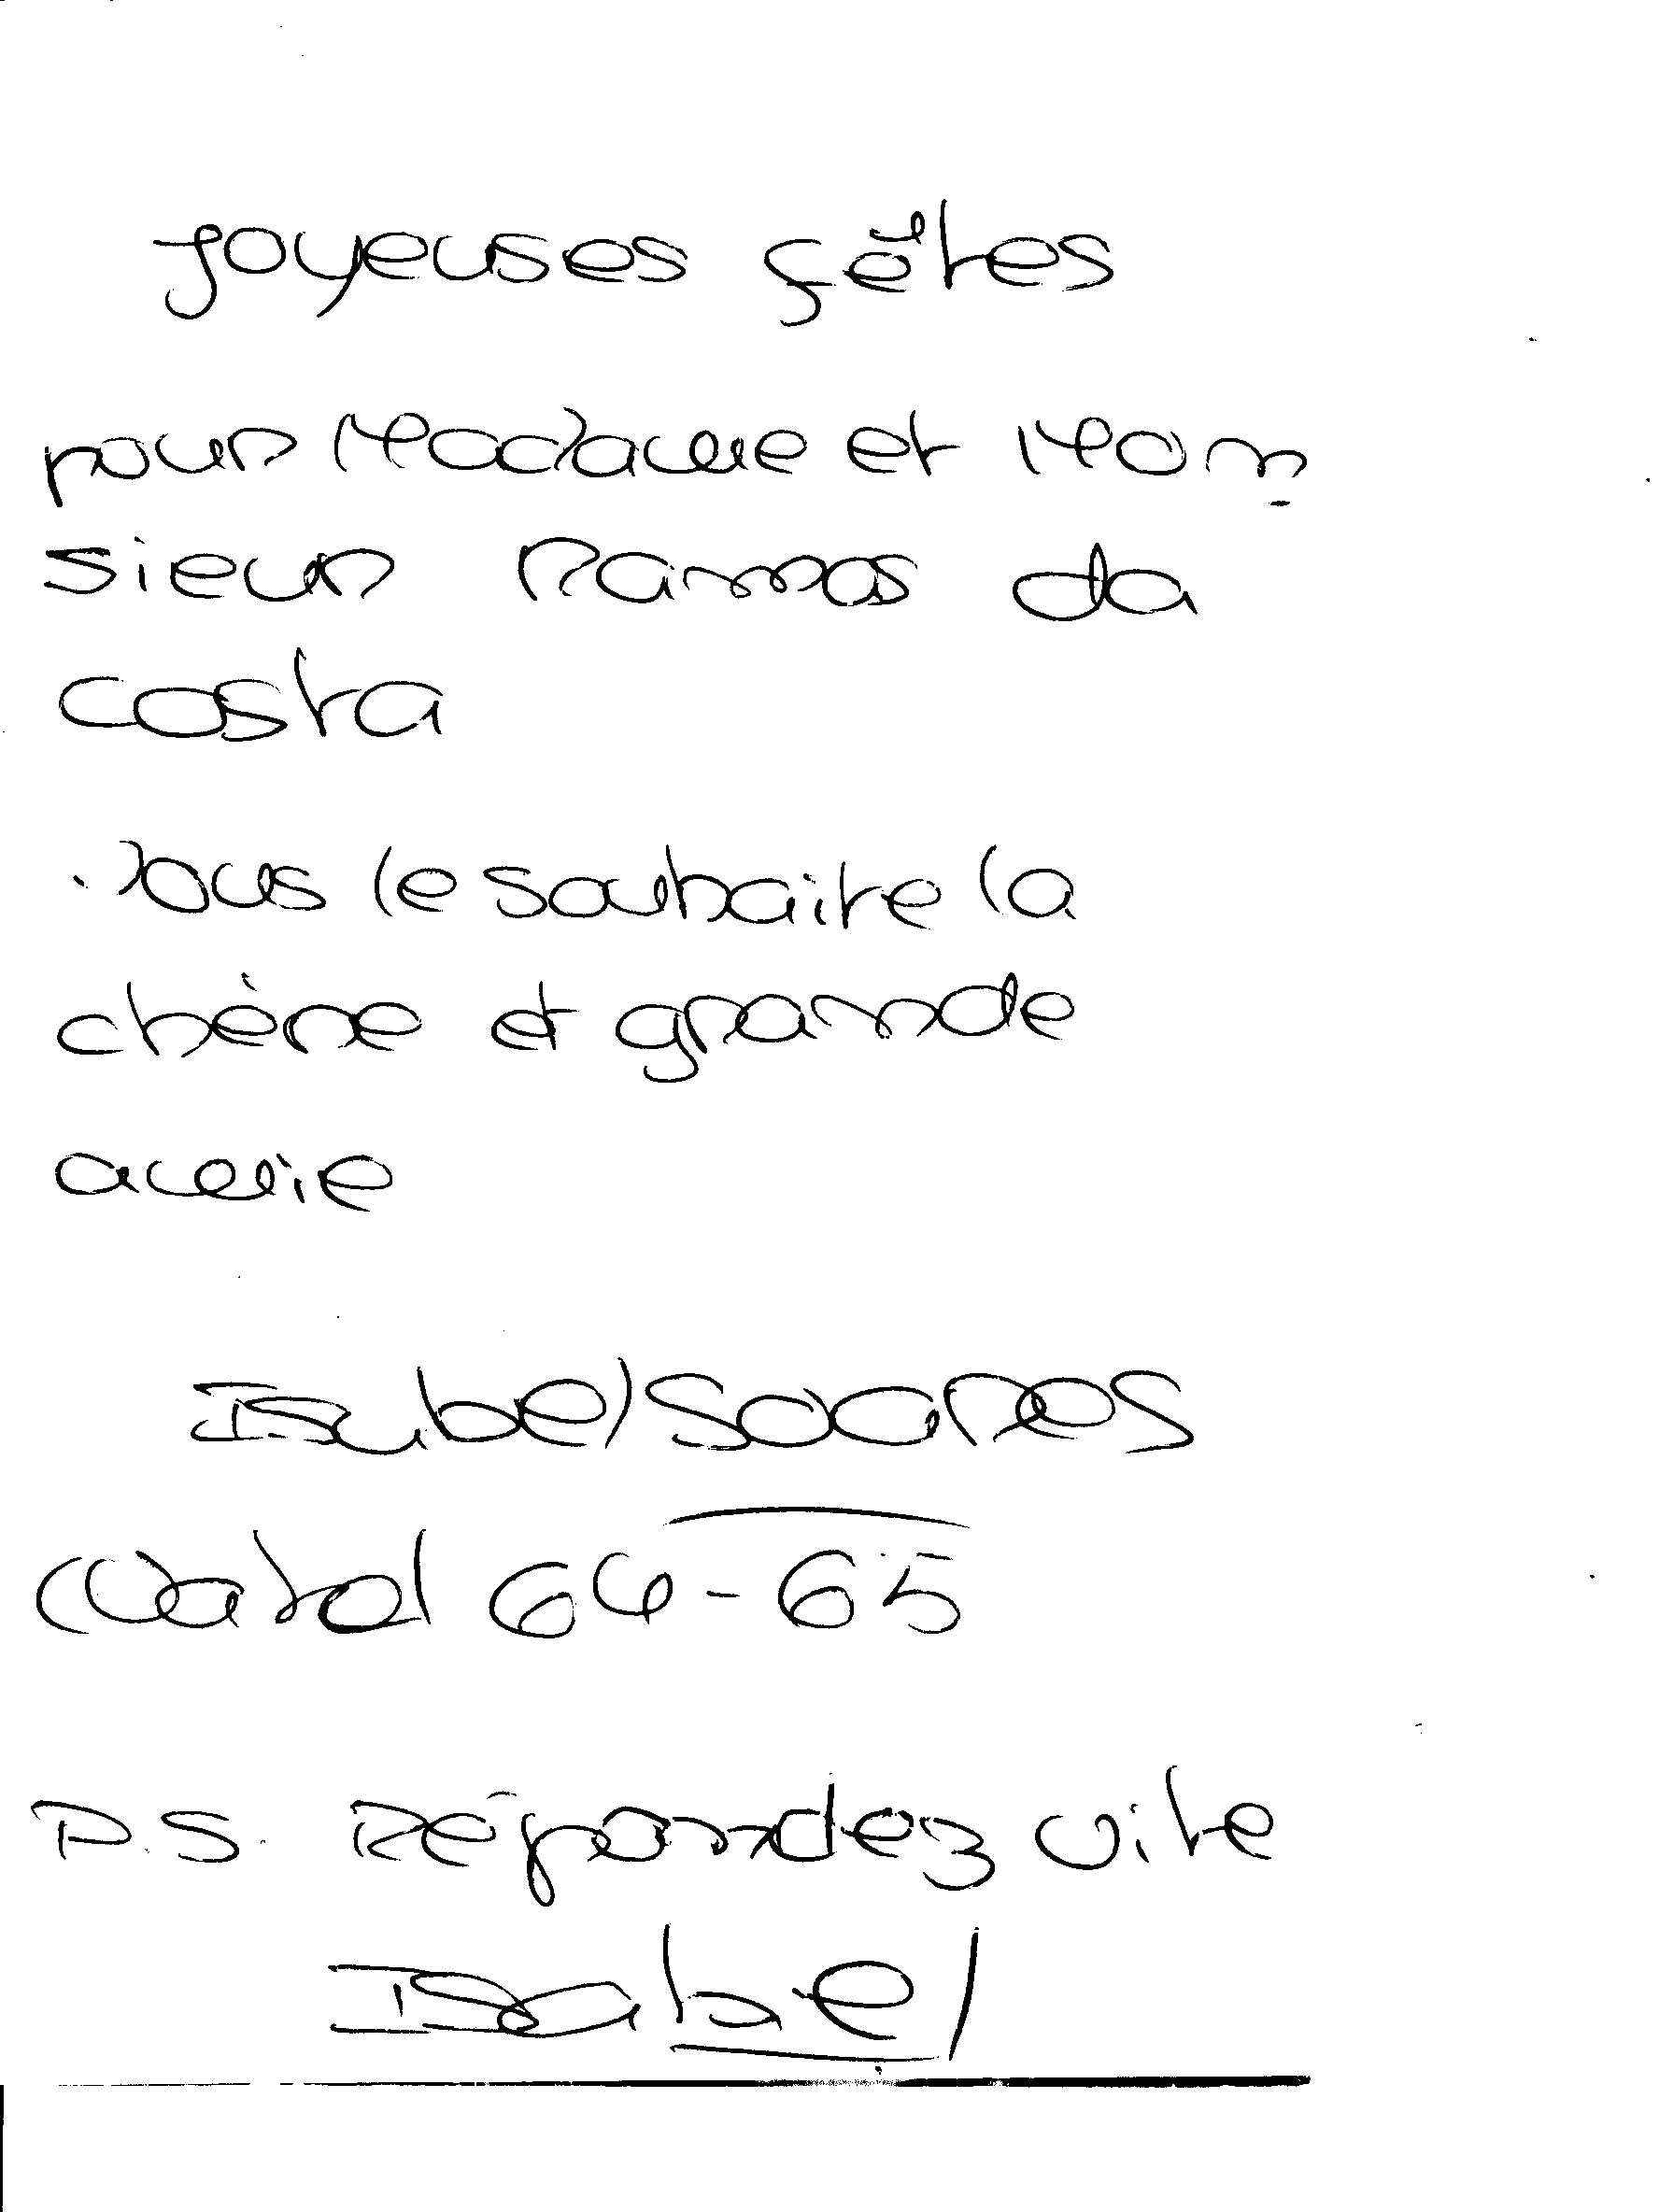 Joyeuses fêtes
pour Madame et Mon-
sieur Ramos da
Costa
Vous le souhaite la
chère et grande
amie
Isabel Soares
Natal 64-65
P.S. Répondez vite
Isabel